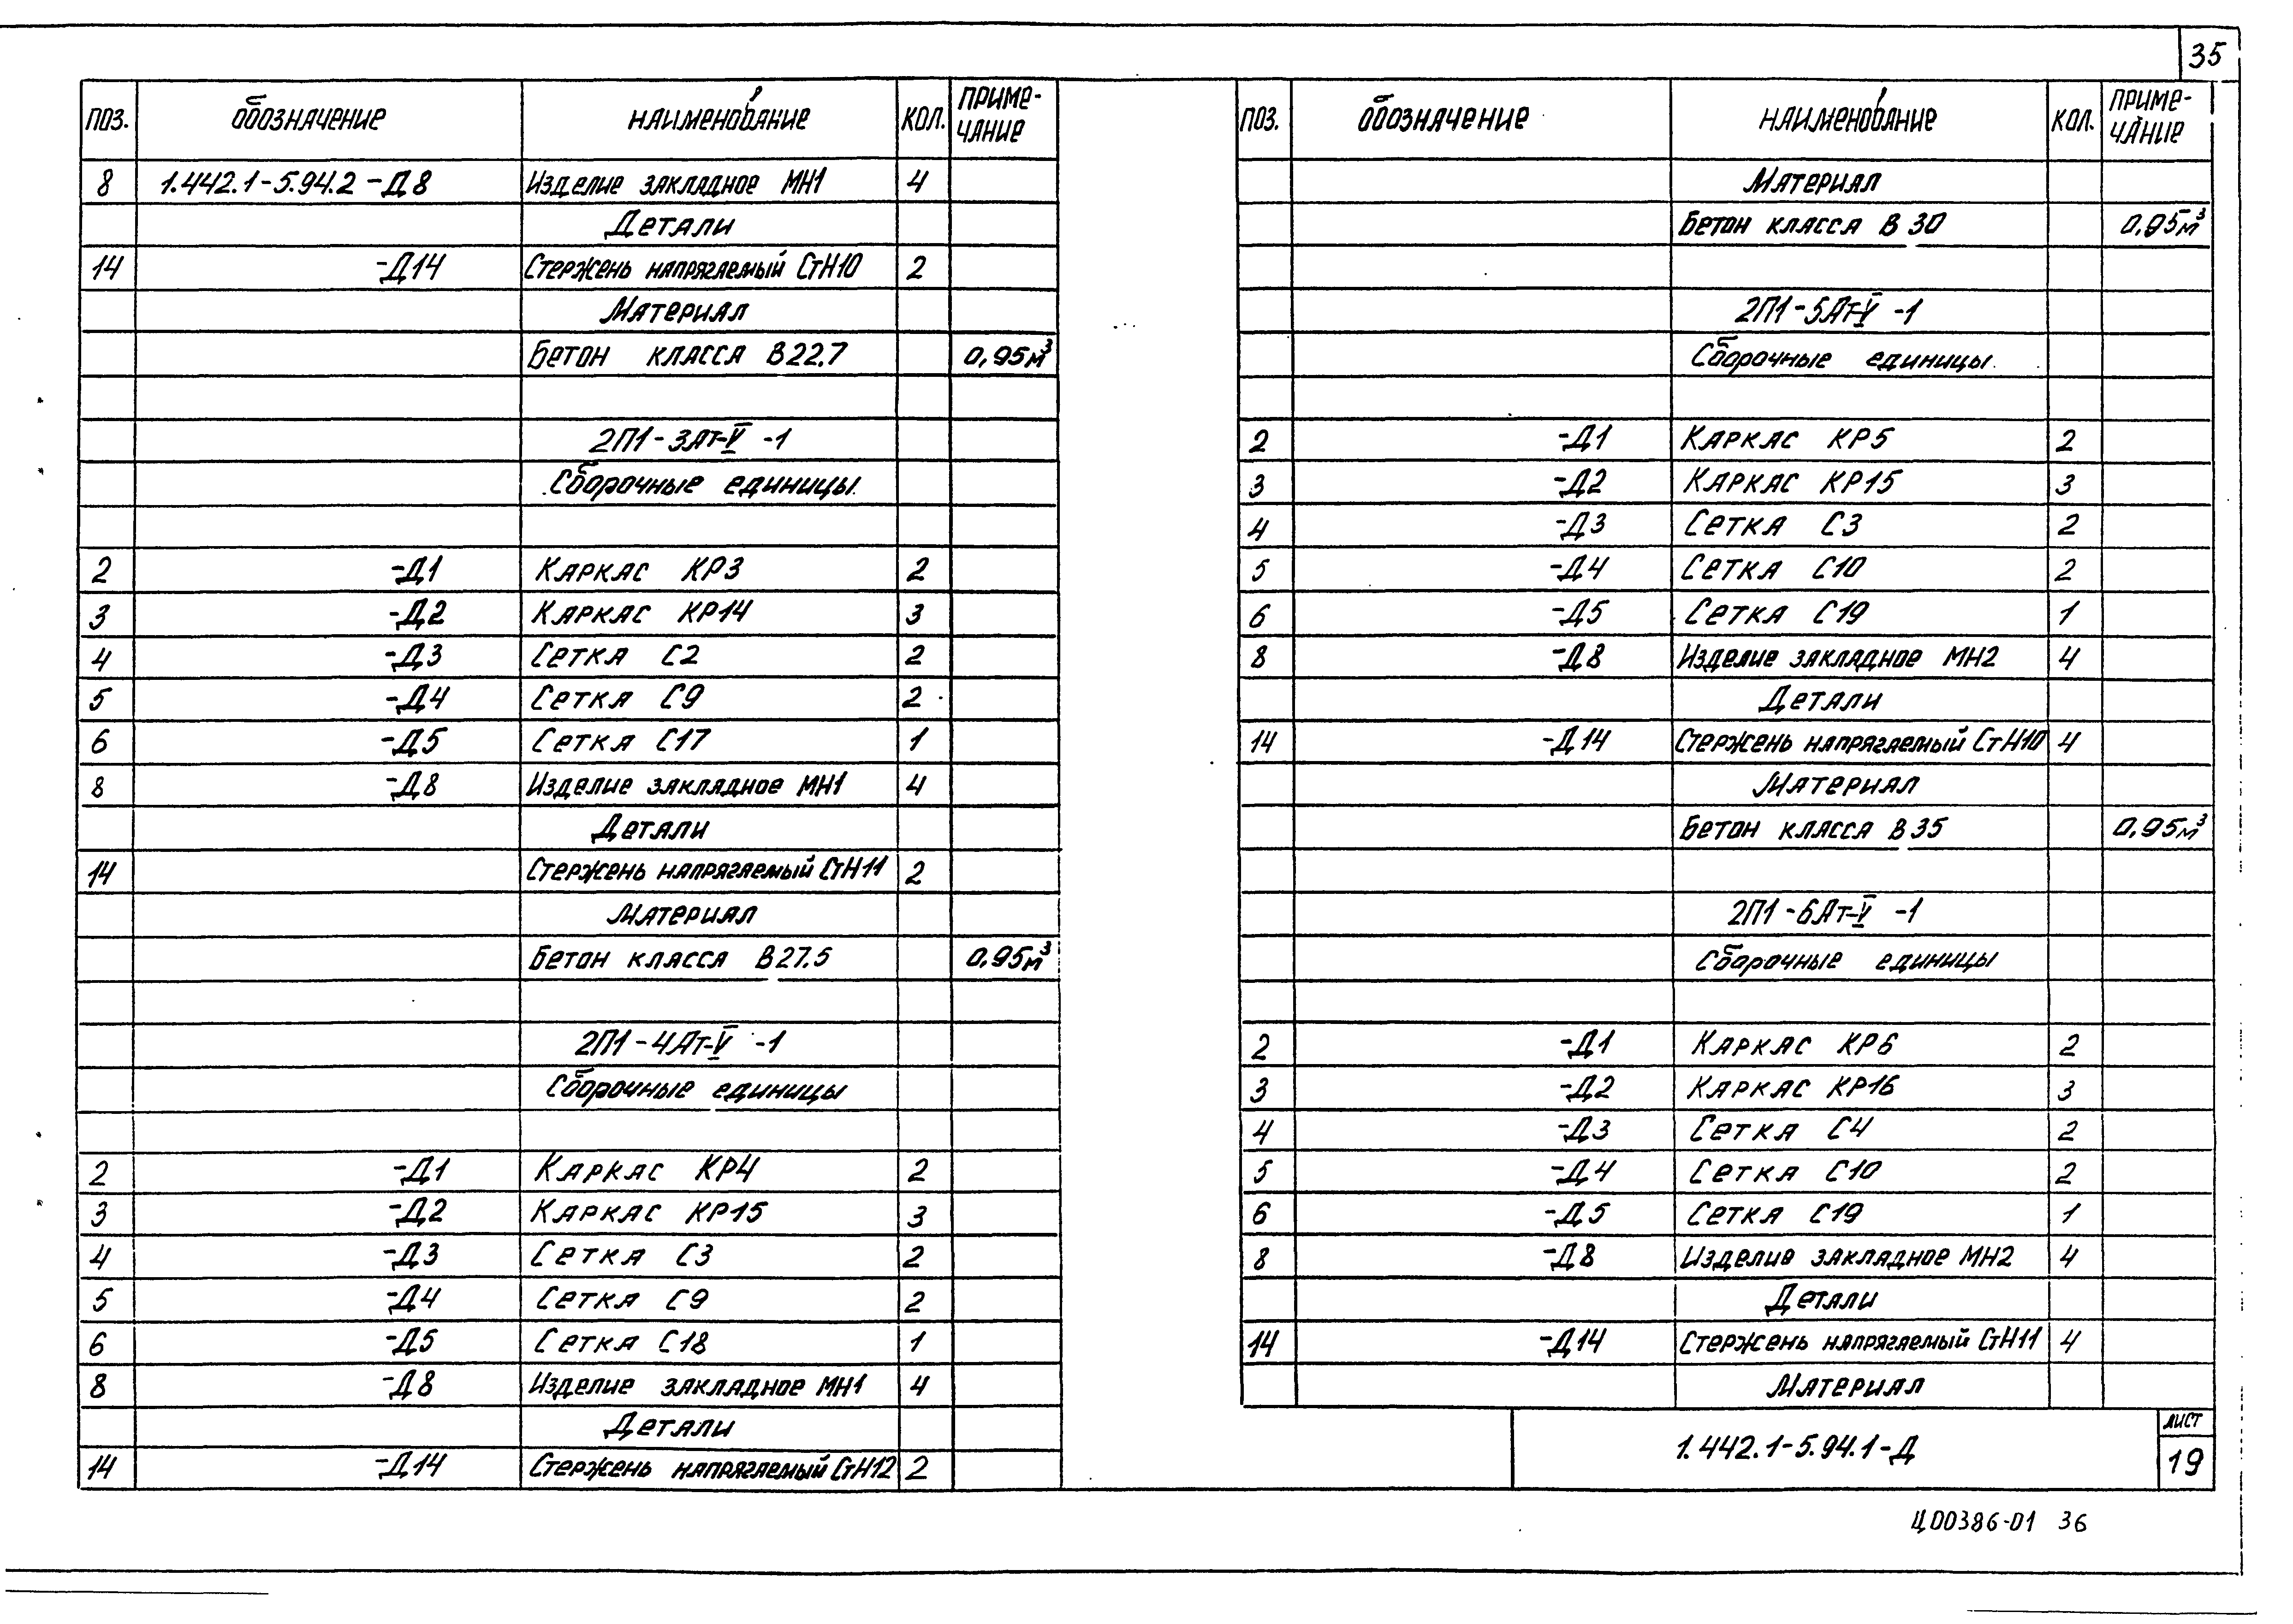 35
ПОЗ. ОБОЗНАЧЕНИЕ НАИМЕНОВАНИЕ КОЛ. ПРИМЕ-
ЧАНИЕ
8 1.442.1-5.94.2-Д8 Изделие закладное МН1 4
Детали
14 -Д14 Стержень напрягаемый СтН10 2
Материал
Бетон класса В22.7 0,95м³
2П1-3Ат-V-1
Сборочные единицы
2 -Д1 Каркас КР3 2
3 -Д2 Каркас КР14 3
4 -Д3 Сетка С2 2
5 -Д4 Сетка С9 2
6 -Д5 Сетка С17 1
8 -Д8 Изделие закладное МН1 4
Детали
14 Стержень напрягаемый СтН11 2
Материал
Бетон класса В27.5 0,95м³
2П1-4Ат-V-1
Сборочные единицы
2 -Д1 Каркас КР4 2
3 -Д2 Каркас КР15 3
4 -Д3 Сетка С3 2
5 -Д4 Сетка С9 2
6 -Д5 Сетка С18 1
8 -Д8 Изделие закладное МН1 4
Детали
14 -Д14 Стержень напрягаемый СтН12 2
ПОЗ. ОБОЗНАЧЕНИЕ НАИМЕНОВАНИЕ КОЛ. ПРИМЕ-
ЧАНИЕ
Материал
Бетон класса В30 0,95м³
2П1-5Ат-V-1
Сборочные единицы
2 -Д1 Каркас КР5 2
3 -Д2 Каркас КР15 3
4 -Д3 Сетка С3 2
5 -Д4 Сетка С10 2
6 -Д5 Сетка С19 1
8 -Д8 Изделие закладное МН2 4
Детали
14 -Д14 Стержень напрягаемый СтН10 4
Материал
Бетон класса В35 0,95м³
2П1-6Ат-V-1
Сборочные единицы
2 -Д1 Каркас КР6 2
3 -Д2 Каркас КР16 3
4 -Д3 Сетка С4 2
5 -Д4 Сетка С10 2
6 -Д5 Сетка С19 1
8 -Д8 Изделие закладное МН2 4
Детали
14 -Д14 Стержень напрягаемый СтН11 4
Материал
1.442.1-5.94.1-Д
ЛИСТ
19
Ц00386-01 36